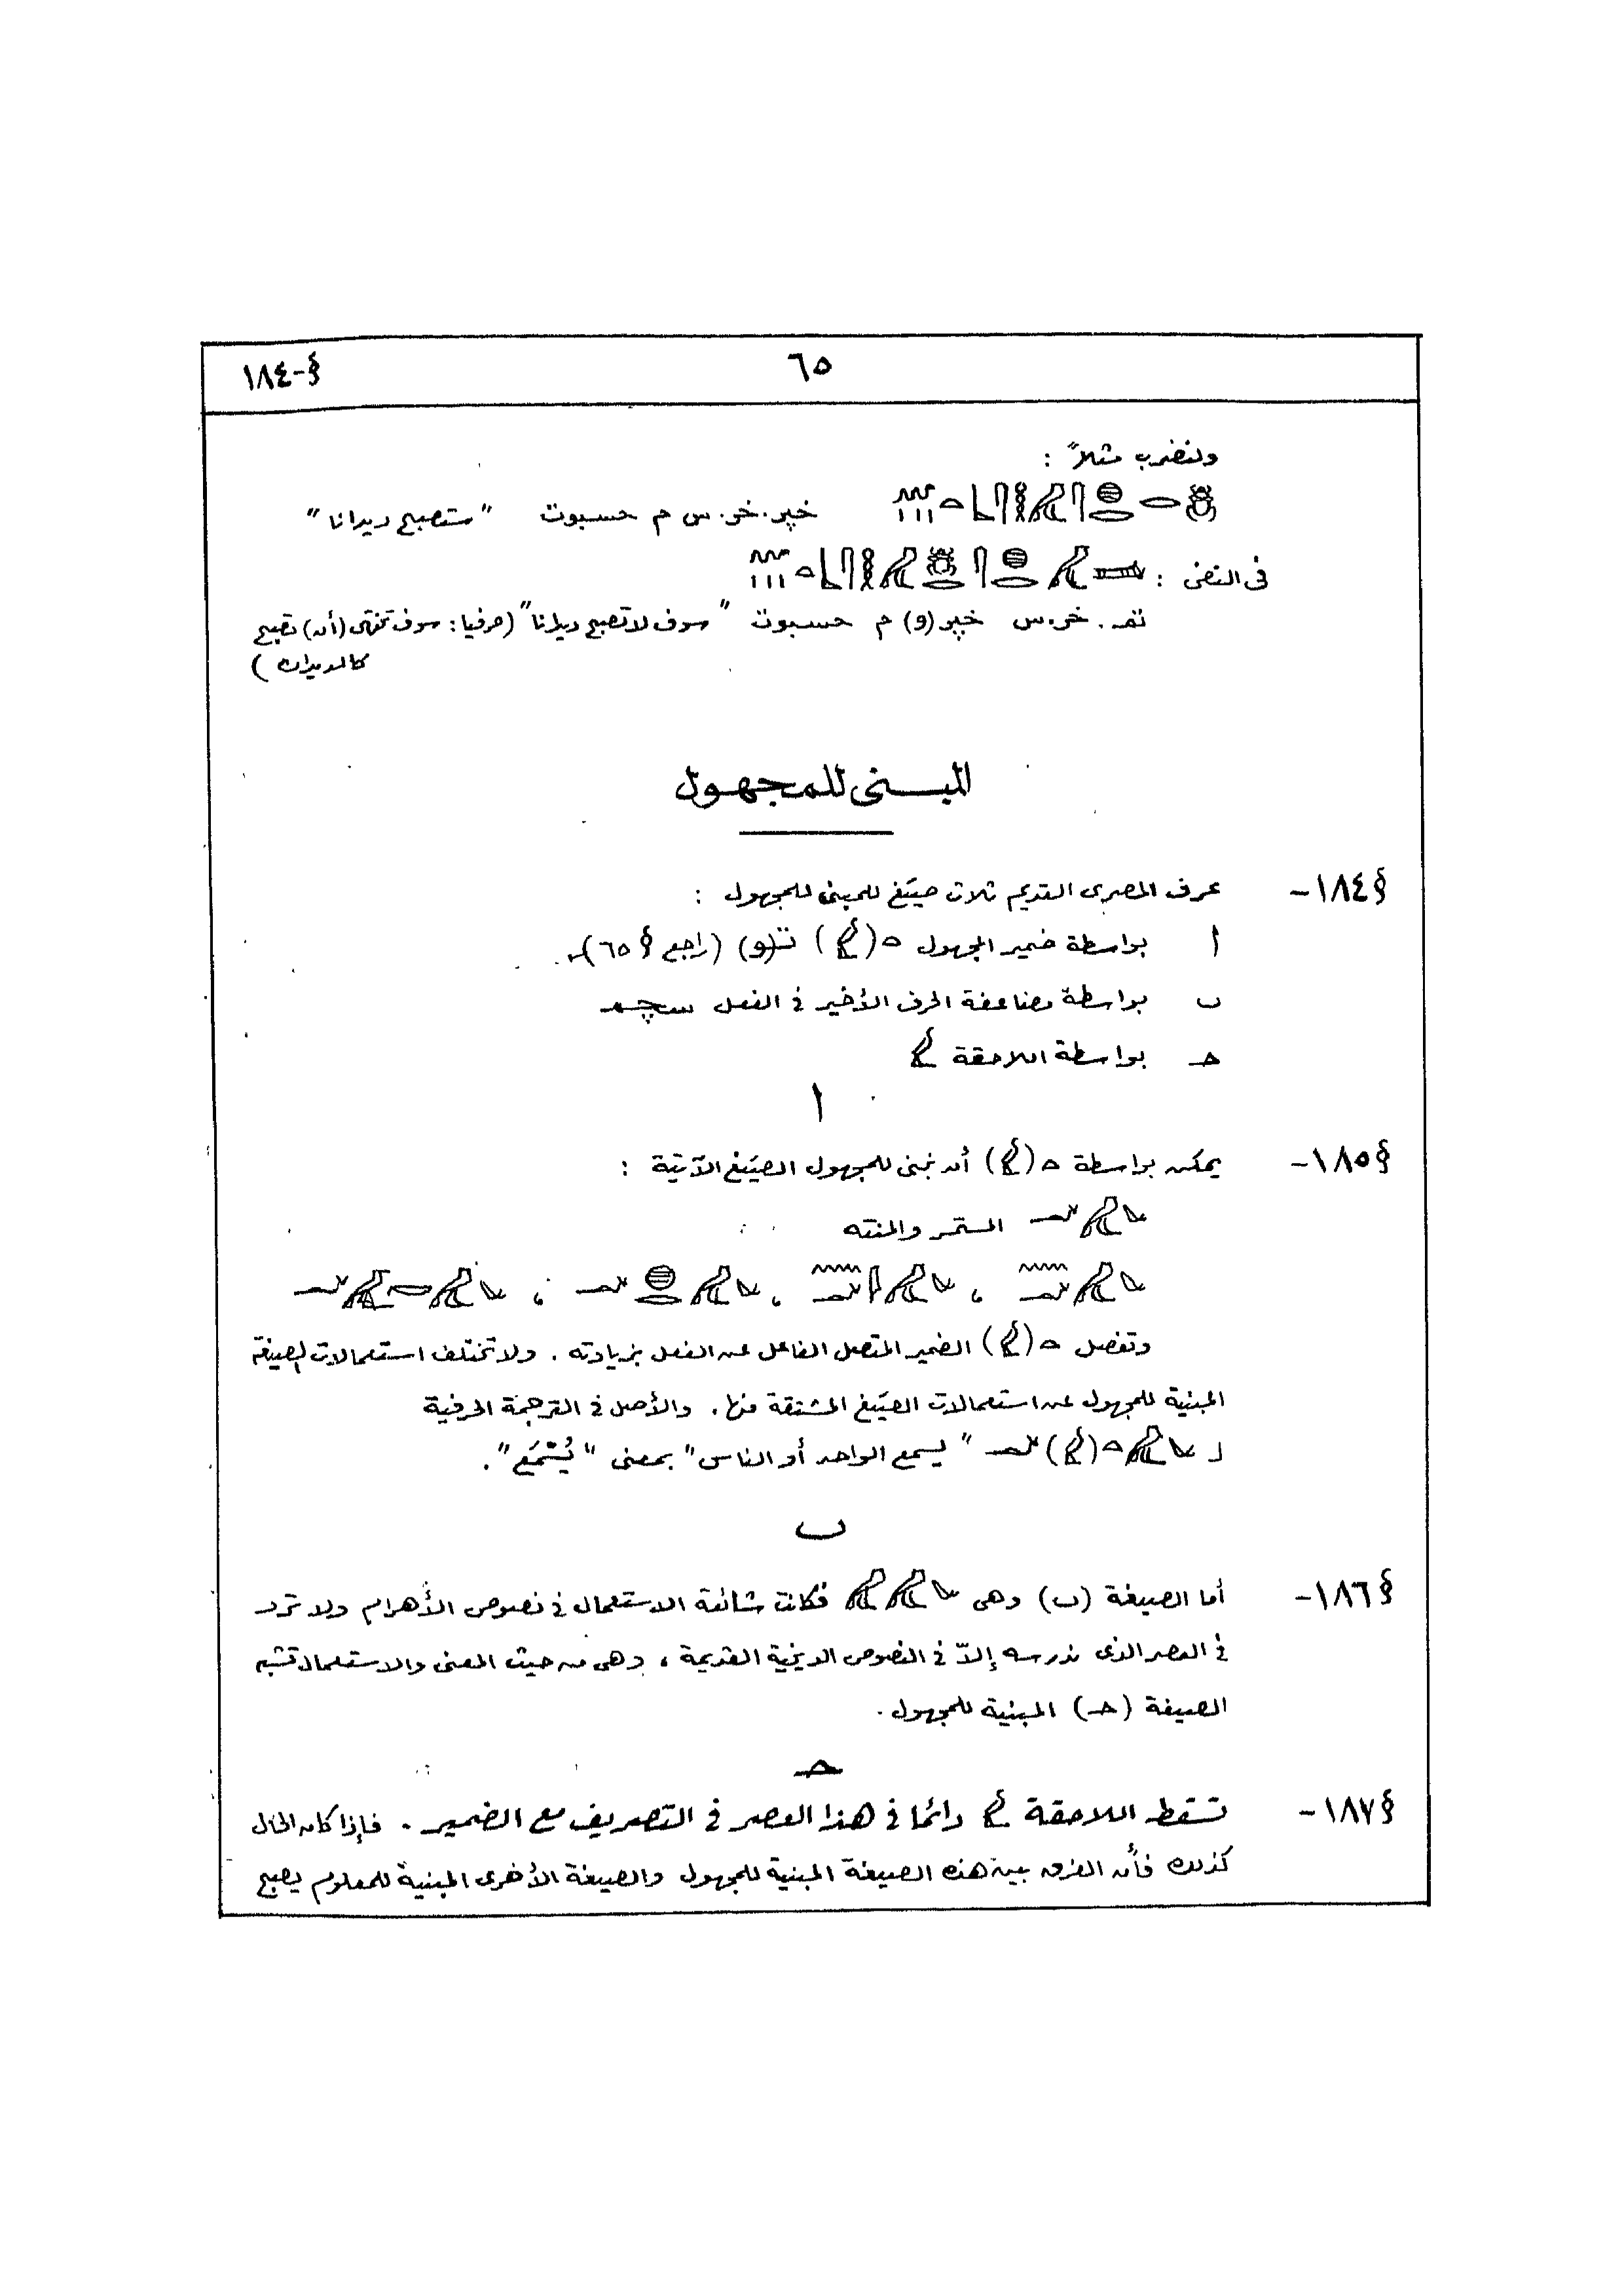 §-١٨٤
٦٥
ولنضرب مثلاً :
خپر.خر.س م حسبوت "ستصبح ديدانا"
فى النفى :
تم.خر.س خپر(و) م حسبوت "سوف لا تصبح ديدانا" (حرفيا: سوف تنتهى (أن) تصبح
كالديدان )
المبنى للمجهول
§١٨٤- عرف المصرى القديم ثلاث صيَغ للمبنى للمجهول :
أ بواسطة ضمير المجهول ( ) ت(و) (راجع § ٦٥).
ب بواسطة مضاعفة الحرف الأخير فى الفعل سچم
حـ بواسطة اللاحقة
أ
§١٨٥- يمكن بواسطة ( ) أن نبنى للمجهول الصيَغ الآتية :
المستمر والمنته
، ، ،
وتفصل ( ) الضمير المتصل الفاعل عن الفعل بزيادته . ولا تختلف استعمالات الصيغة
المبنية للمجهول عن استعمالات الصيَغ المشتقة منها . والأصل فى الترجمة الحرفية
لـ ( ) "يسمع الواحد أو الناس" بمعنى "يُسْمَع" .
ب
§١٨٦- أما الصيغة (ب) وهى فكانت شائعة الاستعمال فى نصوص الأهرام ولا ترد
فى العصر الذى ندرسه إلاّ فى النصوص الدينية القديمة ، وهى من حيث المعنى والاستعمال تشبه
الصيغة (حـ) المبنية للمجهول .
حـ
§١٨٧- تسقط اللاحقة دائما فى هذا العصر فى التصريف مع الضمير . فإذا كان الحال
كذلك فأن الفرق بين هذه الصيغة المبنية للمجهول والصيغة الأخرى المبنية للمعلوم يصبح